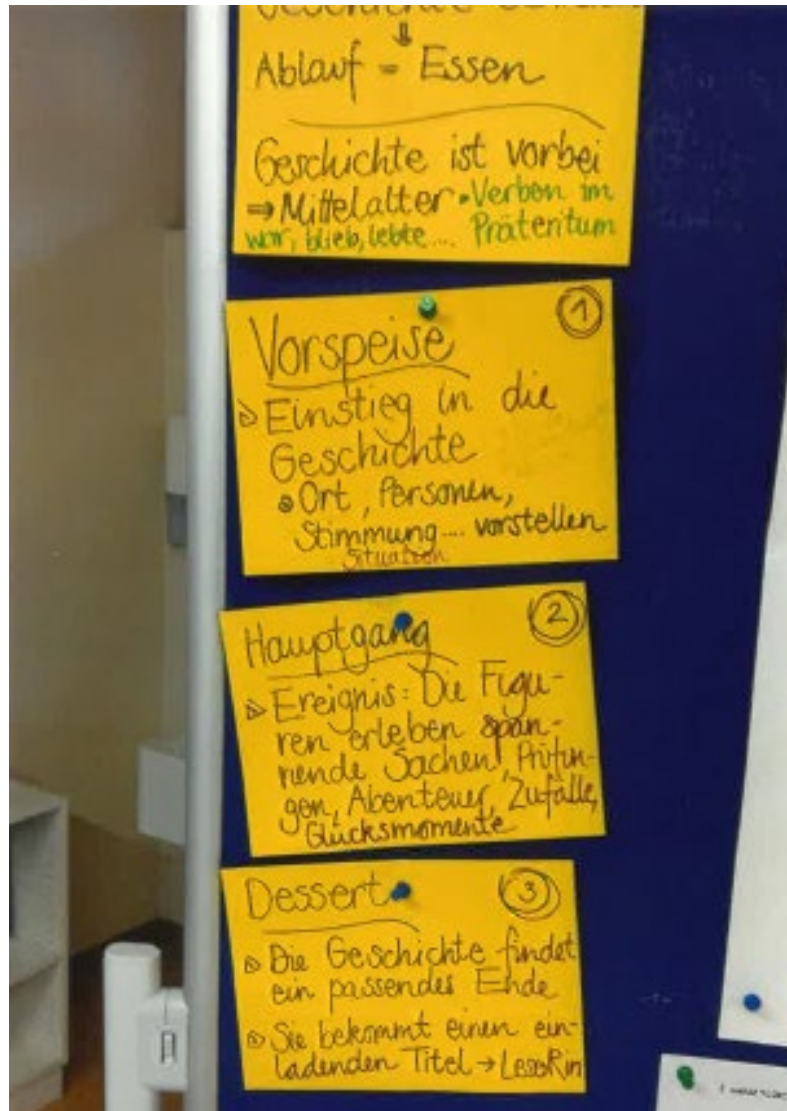 Geschichte
⇓
Ablauf = Essen
Geschichte ist vorbei
⇒ Mittelalter • Verben im
war, blieb, lebte.... Präteritum
Vorspeise ①
▷ Einstieg in die
Geschichte
• Ort, Personen,
Stimmung.... vorstellen
Situation
Hauptgang ②
▷ Ereignis: Die Figu-
ren erleben span-
nende Sachen, Prüfun-
gen, Abenteuer, Zufälle,
Glücksmomente
Dessert ③
▷ Die Geschichte findet
ein passendes Ende
▷ Sie bekommt einen ein-
ladenden Titel → LeseRin